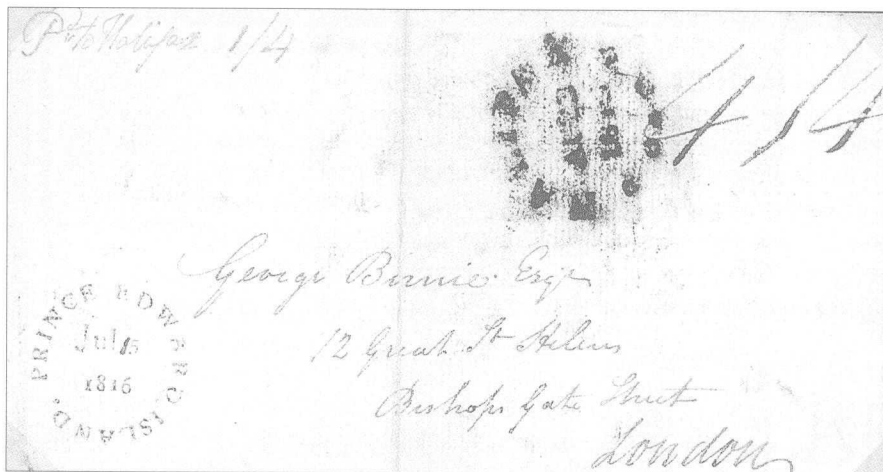 Pd to Halifax 1/4
4/4
George Birnie Esqr
12 Great St Helens
Bishops Gate Street
London
PRINCE EDWARD ISLAND.
Jul 15
1816